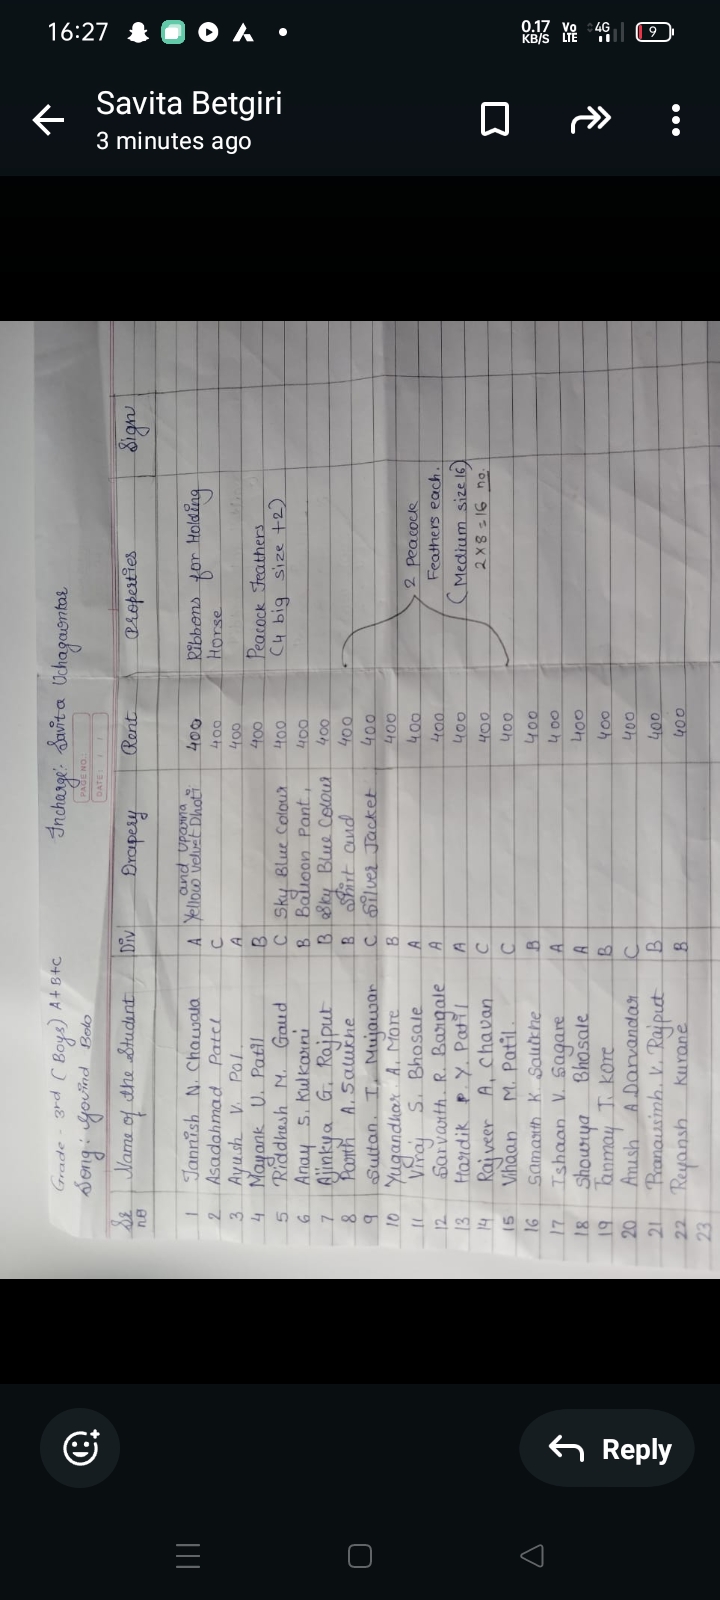 16:27
0.17 KB/S Vo LTE 4G 9
Savita Betgiri
3 minutes ago
Grade - 3rd (Boys) A+B+C Incharge: Savita Uchagaontar
Song: Govind Bolo PAGE NO.
DATE: / /
Sr no Name of the Student Div Drapery Rent Properties Sign
1 Tannish N. Chawala A Yellow Velvet Dhoti and Uparna 400 Ribbons for Holding
2 Asadahmad Patel C 400 Horse
3 Ayush V. Pol. A 400
4 Mayank U. Patil B 400 Peacock Feathers
5 Riddhesh M. Gaud C Sky Blue Colour 400 (4 big size +2)
6 Anay S. Kulkarni B Balloon Pant, 400
7 Ajinkya G. Rajput B Sky Blue Colour 400
8 Parth A. Salukhe B Shirt and 400
9 Sultan. I. Mujawar C Silver Jacket 400
10 Yugandhar. A. More B 400
11 Viraj S. Bhosale A 400 2 Peacock
12 Sarvarth. R. Bargale A 400 Feathers each.
13 Hardik P. Y. Patil A 400 (Medium size 16)
14 Rajveer A. Chavan C 400 2 x 8 = 16 no.
15 Vihaan M. Patil. C 400
16 Samarth K. Salukhe B 400
17 Ishaan V. Sagare A 400
18 Shourya Bhosale A 400
19 Tanmay J. Kore B 400
20 Anush A Darvandar C 400
21 Pranavsinh. V. Rajput B 400
22 Reyansh Kurane B 400
23
Reply